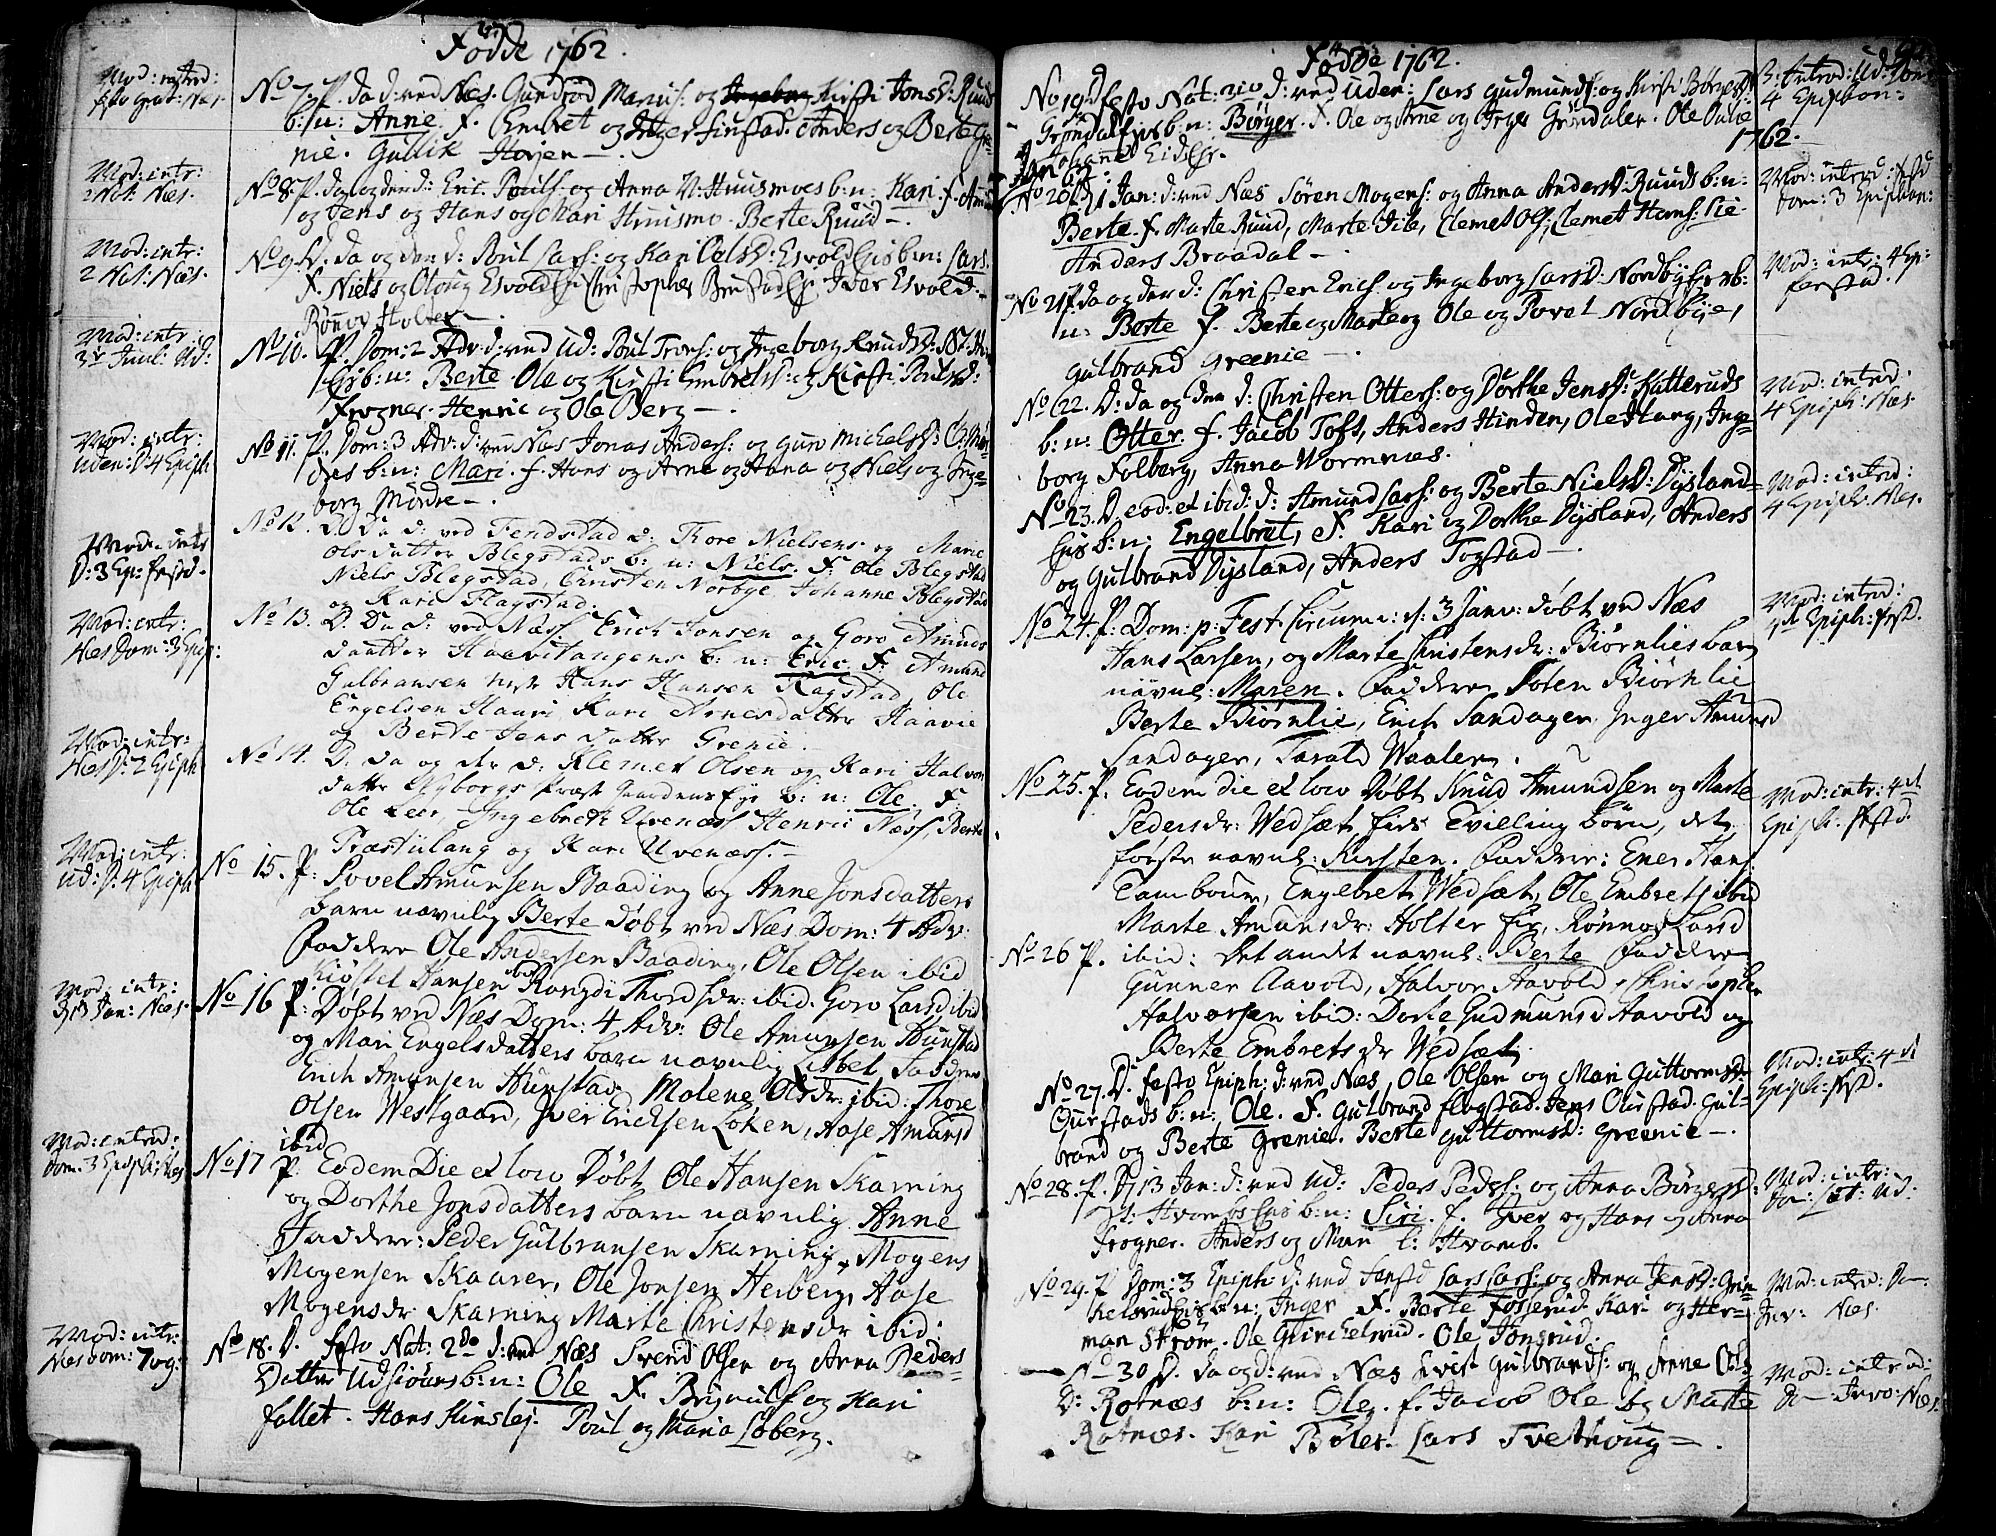 Födde 1762.
Mod: introd:
No 7. P. da d: ved Næs. Gundrod Mariis: og Ingeborg Kirsti Jonsd: Ruuds
b: n: Anne f. Embret og Inger Finstad. Anders og Berte Gre-
nie. Gullik Horjen —.
Mod: intr:
2 Nat: Næs.
No 8. P. da og den d: Eric Pouls: og Anna N: Huusmoes b: n: Kari f. Amund
og Jens og Hans og Mari Huusmo. Berte Ruud —.
Mod: intr:
2 Nat: Næs.
No 9. D. da og den d: Poul Lars: og Kari Oelsd: Esvold Eies b: n: Lars.
f. Niels og Oloug Esvold Ei Christopher Brustad Ei Iver Esvold.
Rönov Holter —.
Mod: intr:
3die Juul: Ud:
No 10. P. Dom: 2 Adv: d: ved Ud: Poul Trons: og Ingeborg Knudsd:
b: n: Berte. Ole og Kirsti Embretsd: og Kirsti Poulsd:
Frogner. Henric og Ole Berg —.
Mod: intr:
Uden: D: 4 Epiph:
No 11. P. Dom: 3 Adv: d: ved Næs Jonas Anders: og Guro Michelsd:
des b: n: Mari. f. Hans og Arne og Anna og Niels og Inge-
borg Mördre —.
Mod: intr
D: 3 Ep: festd.
No 12. D. Da d: ved Fendstad d: Tore Nielsens og Marie
Olsdatter Blegstads b: n: Niels. F: Ole Blegstad
Niels Blegstad, Christen Norbye Johanne Blegstad
og Kari Flagstad.
Mod: intr:
Næs Dom: 3 Epip:
No 13. D. Da d: ved Næss Erich Jonsen og Goro Amunds
daatter Haavitangens b: n: Eric F: Amund
Gulbransen Hans Hansen Ragstad, Ole
Engelsen Haavi, Kari Arnesdatter Haavie
og Berte Jens datter Grenie.
Mod: intr:
Næs D: 2 Epiph
No 14. D. Da og der d: Klemet Olsen og Kari Halvor
datter Nyborgs Præstgaardens Eje b: n: Ole. F:
Ole Leer, Ingebreth Uvenæss Henric Næss, Berte
Præstulang og Kari Uvenæss. —
Mod: intr:
Ud: D: 4 Epiph
No 15. P: Povel Amunsen Baading og Anne Jonsdatters
barn navnlig Berte döbt ved Næs Dom: 4 Adv:
Faddere Ole Andersen Baading, Ole Olsen ibid
Kiöstel Hansen ibid Rangdi Thordsdr: ibid. Goro Larsd ibid
Mod: intr:
D 13 Jan: Næs.
No 16 P: Döbt ved Næs Dom: 4 Adv: Ole Amunsen Hunstad
og Mari Engelsdatters barn navnlig Lisbet, Faddere
Erich Amunsen Hunstad, Malene Olsdr: ibid: Thore
Olsen Westgaard, Iver Erichsen Löken, Aase Amunsd
ibid
Mod: introd:
Dom: 3 Epiph: Næs
No 17 P. Eodem Die et loco Döbt Ole Hansen Skarning
og Dorthe Jonsdatters barn navnlig Anne
Faddere: Peder Gulbransen Skarning, Mogens
Mogensen Skaarer, Ole Jonsen Herberg, Aase
Mogensdr Skarning Marte Christensdr ibid:
Mod: intr:
Næs Dom: 7vag:
No 18. D. festo Nat: 2do d: ved Næs Svend Olsen og Anna Peders
Datter Udsiöens b: n: Ole F. Brynulf og Kari
fallet. Hans Hinsley. Poul og Maria Löberg.
Födde 1762.
No 19. D festo Nat: 3tio d: ved Uden: Lars Gudmunds: og Kirsti Börgersd:
Gröndals Eies b: n: Börger. F. Ole og Arne og Inger Gröndalen. Ole Julie
Johannes Eids Ejr.
Introd: Ud: Dom
4 Epiphan:
1762.
No 20. D. 1 Jan: d: ved Næs Sören Mogens: og Anna Andersd: Ruuds b: n:
Berte. f. Marte Ruud, Marte Iile, Clemet Ols: Clemet Hans: Lie.
Anders Braadal —
Mod: introd: festd
Dom: 3 Epiphan:
No 21. P. da og der d: Christen Erics: og Ingeborg Larsd: Nordbye Eies b:
n: Berte f. Berte og Marte og Ole og Povel Nordbye,
Gulbrand Greenie —.
Mod: intr: 4 Ep:
festd.
No 22. D: da og den d: Christen Otters: og Dorthe Jensd: Katteruds
b: n: Otter. f. Jacob Toft, Anders Hinden, Ole Haug, Inge-
borg Folberg, Anna Wormnæs.
Mod: introd:
4 Epiph: Næs.
No 23. D. eod: et ibid: d: Amund Lars: og Berte Nielsd: Dysland-
Eies b: n: Engelbret, F. Kari og Dorthe Dysland, Anders
og Gulbrand Dysland, Anders Togstad —.
Mod: introd:
4 Epiph: Næs.
No 24. P: Dom: p: Fest Circumc: d: 3 Janv: döbt ved Næs
Hans Larsen, og Marte Christensdr: Biörnlies barn
navnl: Maren. Faddere Soren Biörnlie
Berte Biörnlie, Erich Sandager Inger Amunsd
Sandager, Tarald Waaler.
Mod: introd:
4de Epiph: festd.
No 25. P. Eodem die et loco Döbt Knud Amundsen og Marte
Pedersdr: Wedsæt Eies Tvilling börn, det
förste navnl: Kirsten. Faddere: Ener Hans:
Tambour, Engebret Wedsæt, Ole Embrets ibid
Marte Amunsdr: Holter Eie, Rönnov Larsd
No 26 P. ibid: Det andet navnl: Berte Faddere
Gunner Aavold, Halvor Aavold, Christopher
Halvorsen ibid: Dorte Gudmunsd Aavold og
Berte Embretsdr Wedsæt.
Mod: intr: 4de
Epiph: festd.
No 27. D. festo Epiph: d: ved Næs, Ole Olsen og Mari Guttormsd:
Ourstads b: n: Ole. F. Gulbrand Flogstad. Jens Ourstad. Gul-
brand og Berte Grenie. Berte Guttormsd: Greenie —.
Mod: intr: 4de
Epiph: festd.
No 28. P. D 13 Jan: d: ved Ud: Peders Peders: og Anna Börgersd:
Hvambs Eies b: n: Siri. f. Iver og Hans og Anna
Frogner. Anders og Mari l: Hvamb.
Mod: intr:
Ud:
No 29. P Dom: 3 Epiph d: ved Fenstd Lars Lars: og Anna Jensd: Grin-
kelsrud Eies b: n: Inger F. Berte Fosserud Kari og Her-
man Ström. Ole Grinchelsrud. Ole Jonsrud.
Mod: introd: Do-
Inv: Næs.
No 30 D. da og d: ved Næs Evist Gulbrands: og Anne Ols
D: Rotnæs b: n: Ole. f. Jacob Ole og Marte
Rotnæs. Kari Böler. Lars Tvethoug —.
Mod: introd:
Do- Invo: Næs.